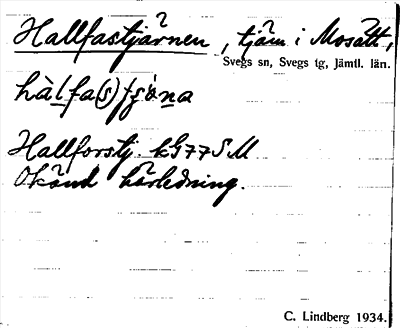 Hallfastjärnen, tjärn i Mosätt,
Svegs sn, Svegs tg, Jämtl. län.
hàlfa(s)
Hallforstj. kG77SM
Okänd härledning.
C. Lindberg 1934.